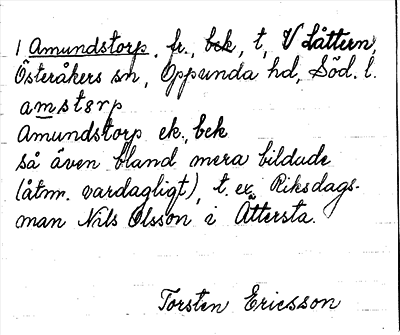 1 Amundstorp, fr., bek, t, V Låttern,
Österåkers sn, Oppunda hd, Söd. l.
amstɘrp
Amundstorp ek., bek
så även bland mera bildade
(åtm. vardagligt), t. ex. Riksdags-
man Nils Olsson i Ättersta.
Torsten Ericsson